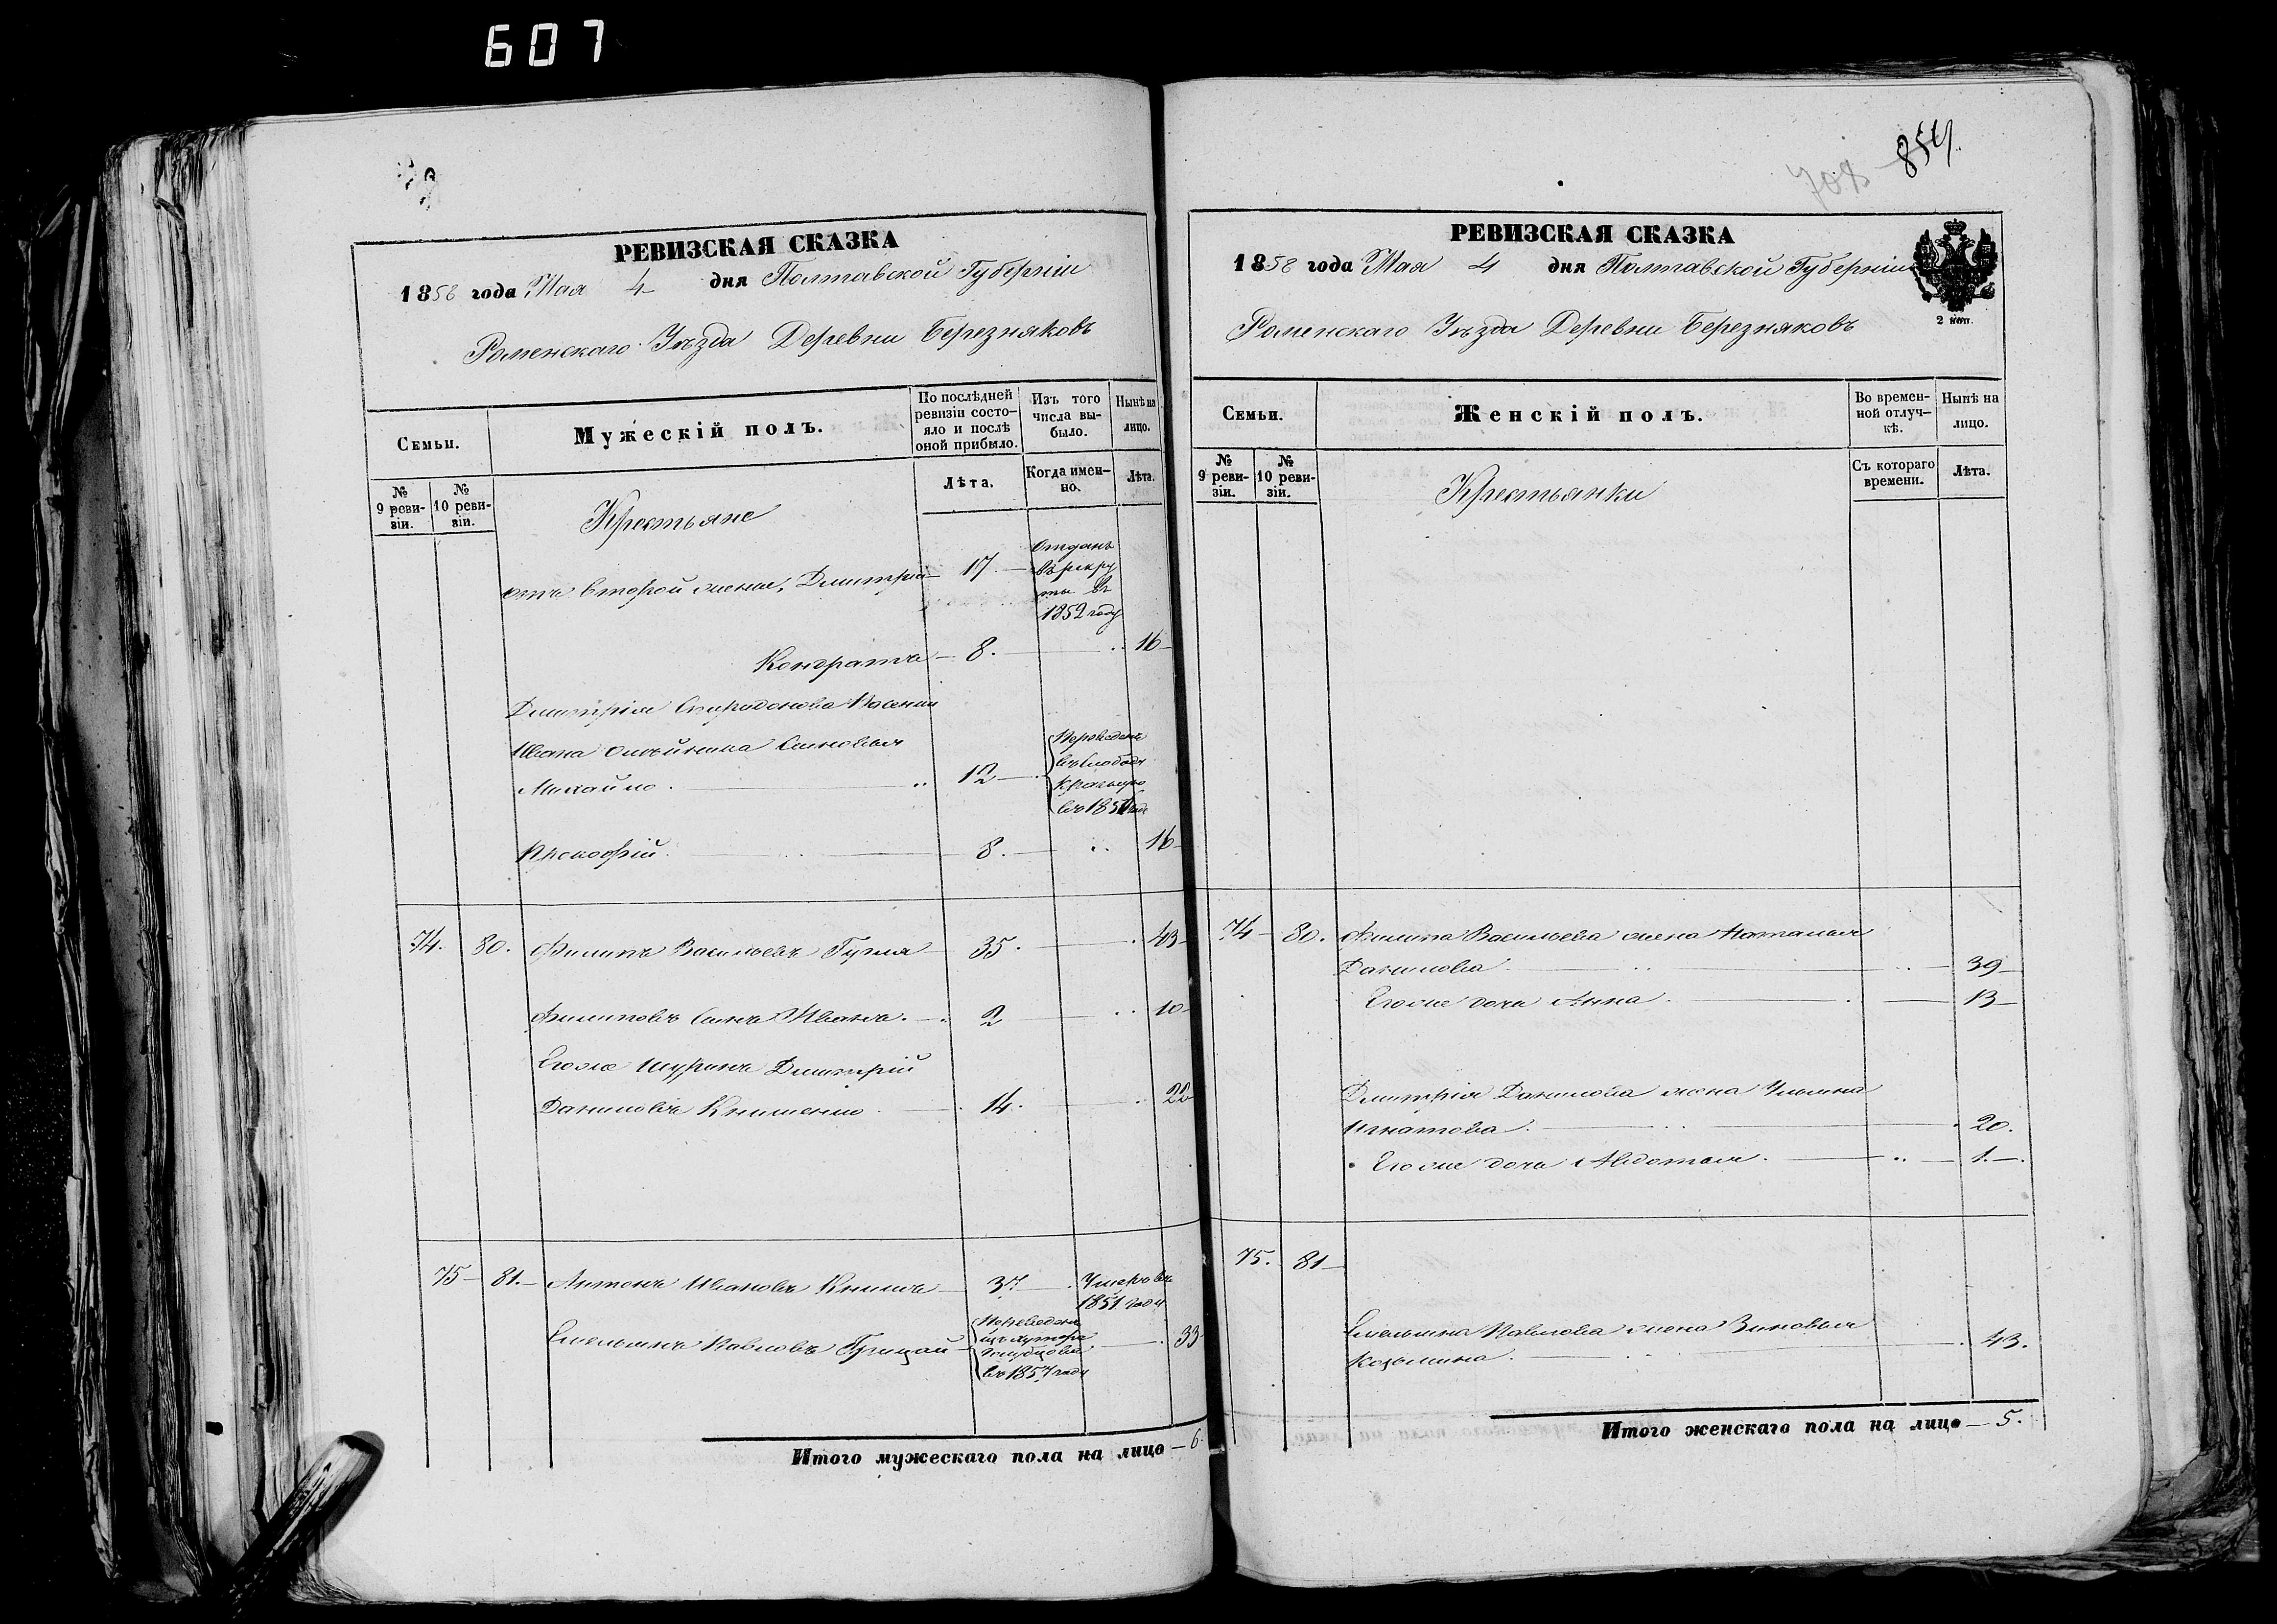 607
РЕВИЗСКАЯ СКАЗКА
1858 года Мая 4 дня Полтавской Губерніи
Роменскаго Уѣзда Деревни Березняковъ
Семьи.
Мужескій полъ.
По послѣдней ревизіи состо-
яло и послѣ оной прибыло.
Изъ того числа вы-
было.
Нынѣ на лицо.
№ 9 реви-
зіи.
№ 10 реви-
зіи.
Лѣта.
Когда имен-
но.
Лѣта.
Крестьяне
отъ второй жены, Дмитрій 17. Отданъ
въ рекру
ты въ
1852 году
Кондратъ 8. 16
Дмитрія Спиридонова
Ивана Сыновья
Михайло. 12 Переведенъ
въ слободу
въ 185 году
Прокофій. 8. 16
74. 80. Филипъ Васильевъ Гугля 35. 43
Филиповъ сынъ Иванъ. 2 10
Егоже Шуринъ Дмитрій
Даниловъ Книшенко 14. 22
75 81. Антонъ Ивановъ Книшъ 37 Умеръ въ
1851 году
Емельянъ Павловъ Грицай Переведенъ
изъ хутора
въ 1857 году 33
Итого мужескаго пола на лицо 6.
854.
708
РЕВИЗСКАЯ СКАЗКА
1858 года Мая 4 дня Полтавской Губерніи
2 коп.
Роменскаго Уѣзда Деревни Березняковъ
Семьи.
Женскій полъ.
Во времен-
ной отлуч-
кѣ.
Нынѣ на лицо.
№ 9 реви-
зіи.
№ 10 реви-
зіи.
Съ котораго времени.
Лѣта.
Крестьянки
74 80. Филипа Васильева жена Наталья
Данилова. 39
Егоже дочь Анна. 13
Дмитрія Данилова жена Ульяна
Игнатова. 20.
Егоже дочь Авдотья. 1.
75. 81
Емельяна Павлова жена Зиновья
Козьмина. 43.
Итого женскаго пола на лицо 5.